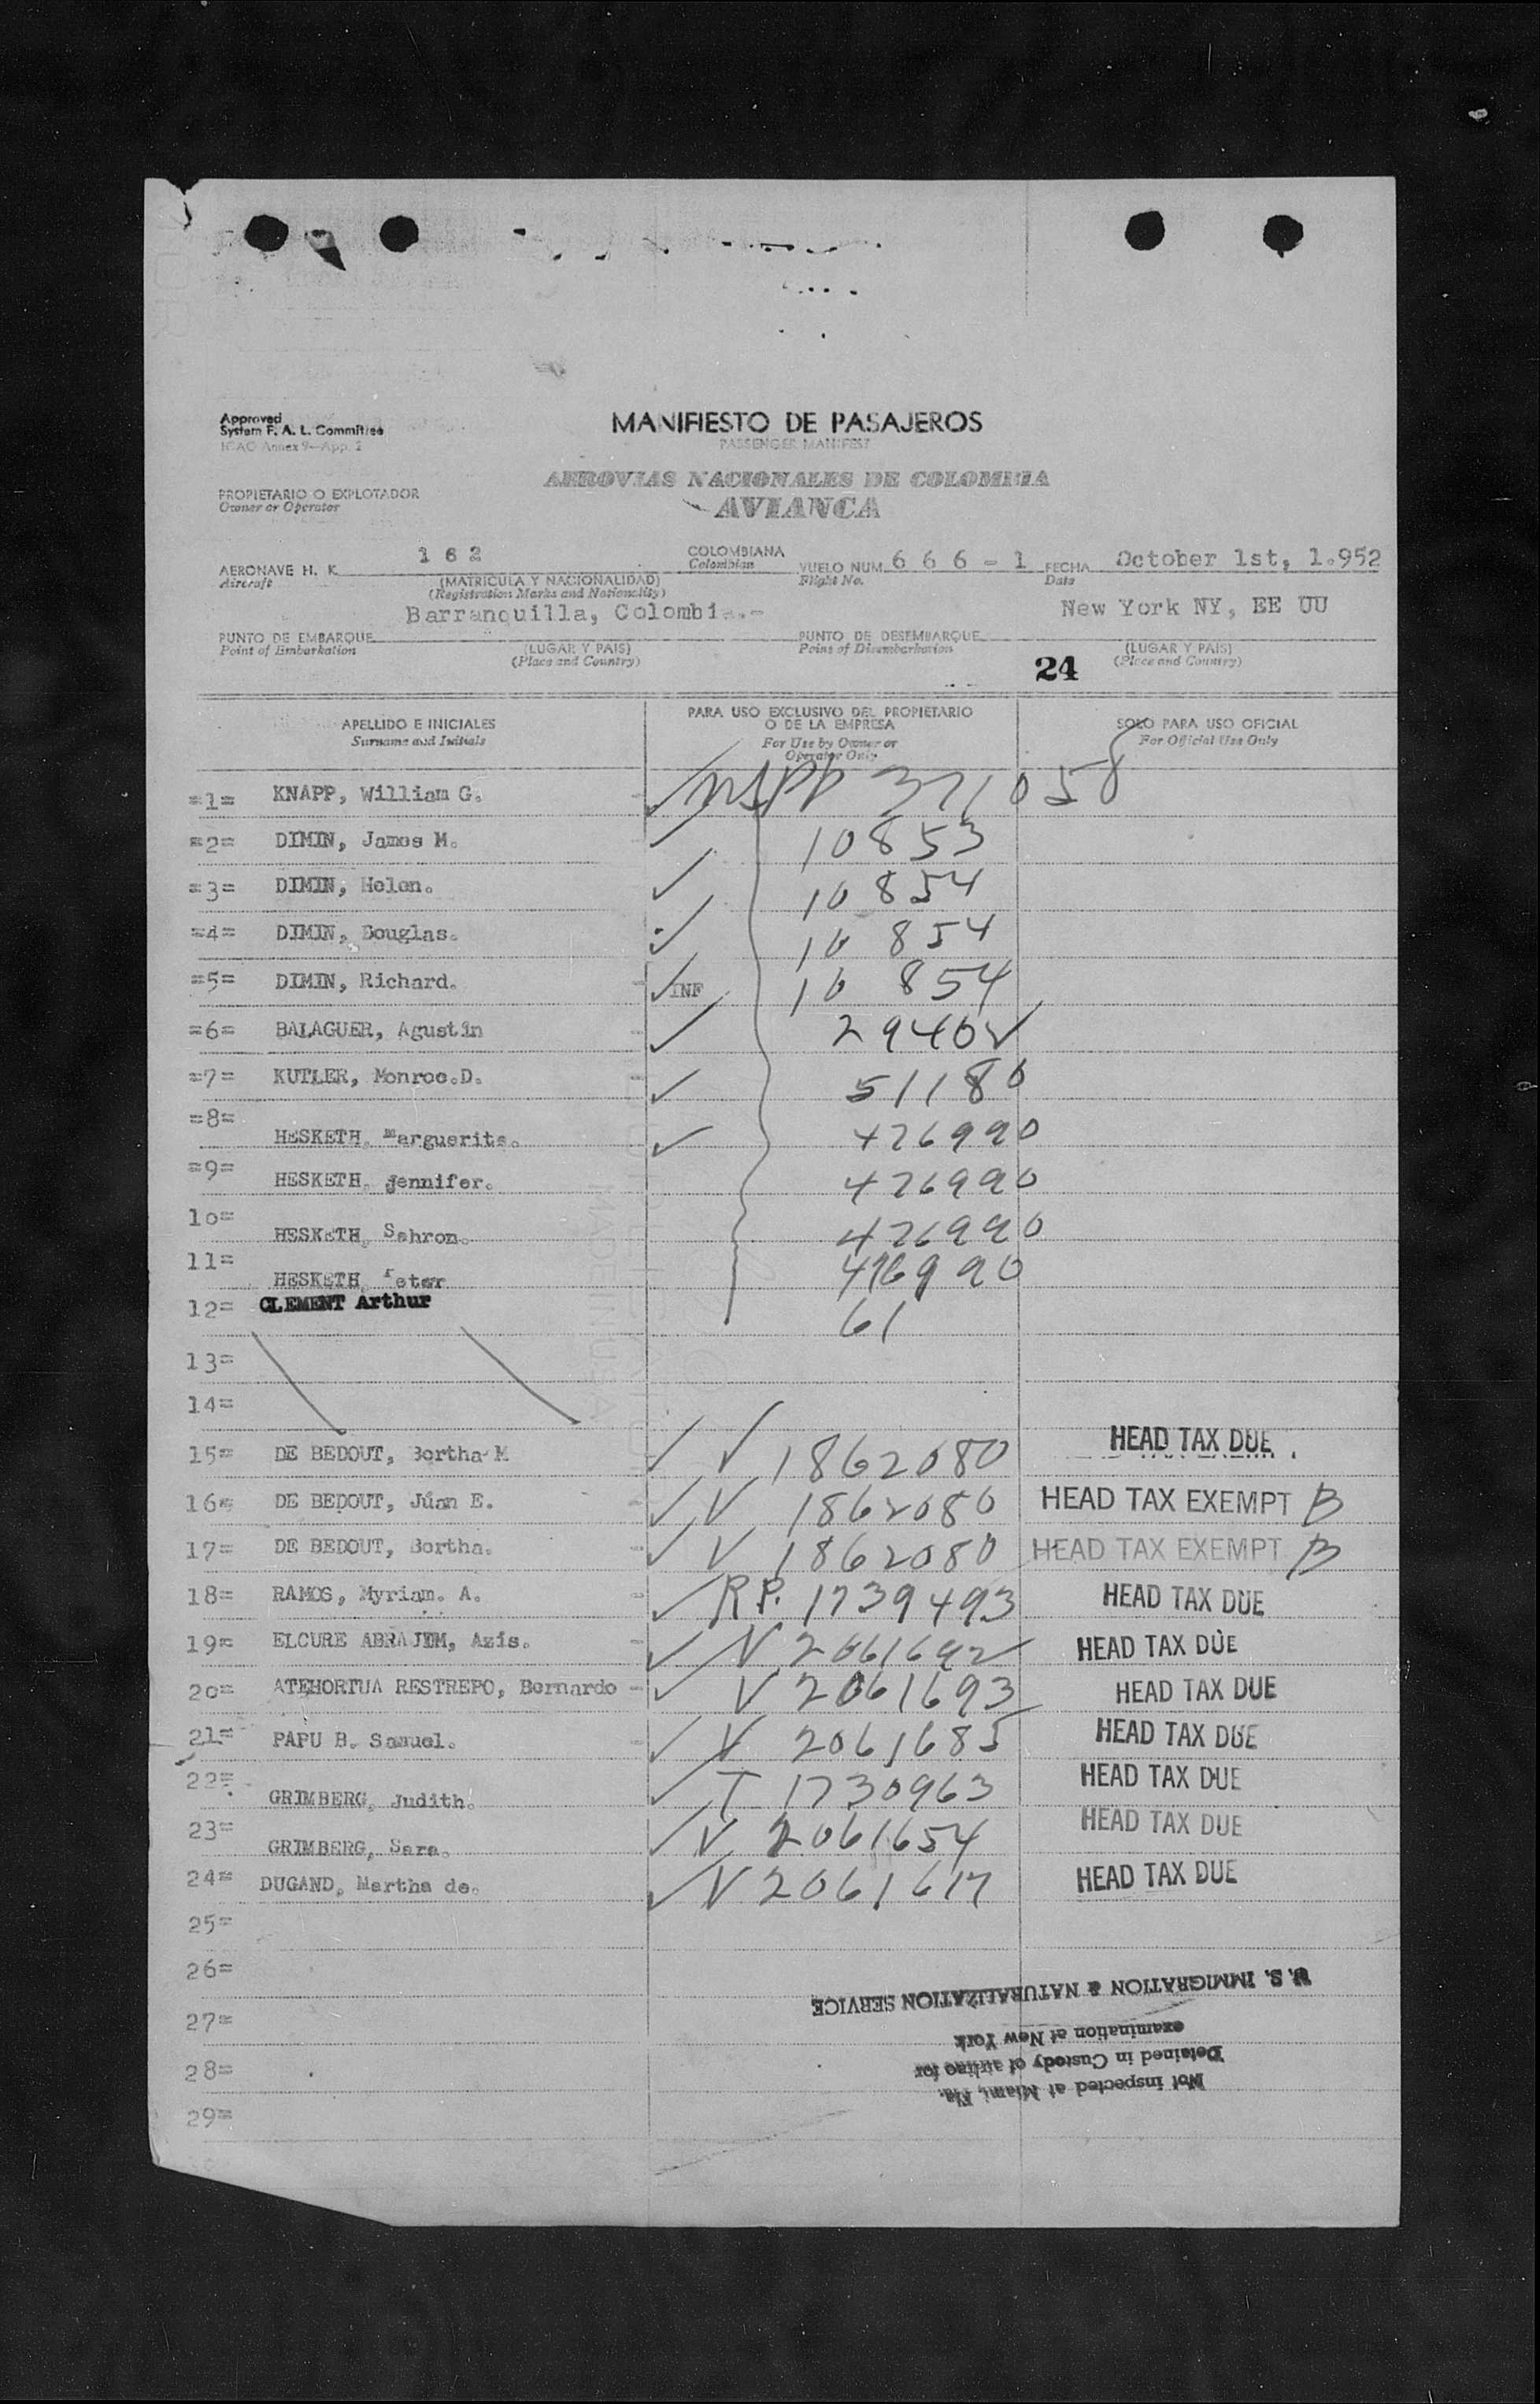 Approved
System F. A. L. Committee
ICAO Annex 9—App. 2
MANIFIESTO DE PASAJEROS
PASSENGER MANIFEST
AEROVIAS NACIONALES DE COLOMBIA
AVIANCA
PROPIETARIO O EXPLOTADOR
Owner or Operator
AERONAVE H. K. 1 6 2 COLOMBIANA VUELO NUM. 6 6 6 - 1 FECHA October 1st, 1.952
Aircraft (MATRICULA Y NACIONALIDAD) Colombian Flight No. Date
(Registration Marks and Nationality)
Barranquilla, Colombia.- New York NY, EE UU
PUNTO DE EMBARQUE (LUGAR Y PAIS) PUNTO DE DESEMBARQUE (LUGAR Y PAIS)
Point of Embarkation (Place and Country) Point of Disembarkation (Place and Country)
24
APELLIDO E INICIALES PARA USO EXCLUSIVO DEL PROPIETARIO O DE LA EMPRESA SOLO PARA USO OFICIAL
Surname and Initials For Use by Owner or Operator Only For Official Use Only
=1= KNAPP, William G. ✓ 371058
=2= DIMIN, James M. ✓ 10853
=3= DIMIN, Helen. ✓ 10854
=4= DIMIN, Douglas. ✓ 10854
=5= DIMIN, Richard. ✓ INF 10854
=6= BALAGUER, Agustin ✓ 29402
=7= KUTLER, Monroe.D. ✓ 51180
=8= HESKETH, Marguerite. ✓ 426990
=9= HESKETH, Jennifer. 426990
10= HESKETH, Sahron. 426990
11= HESKETH, Peter 426990
12= CLEMENT Arthur 61
13=
14=
15= DE BEDOUT, Bertha M ✓ ✓ 1862080 HEAD TAX DUE
16= DE BEDOUT, Júan E. ✓ V 1862080 HEAD TAX EXEMPT B
17= DE BEDOUT, Bertha. ✓ V 1862080 HEAD TAX EXEMPT B
18= RAMOS, Myriam. A. ✓ R.P. 1739493 HEAD TAX DUE
19= ELCURE ABRAJEM, Azis. ✓ V 2061692 HEAD TAX DUE
20= ATEHORTUA RESTREPO, Bernardo - ✓ V 2061693 HEAD TAX DUE
21= PAPU B. Samuel. ✓ V 2061685 HEAD TAX DUE
22= GRIMBERG, Judith. ✓ T 1730963 HEAD TAX DUE
23= GRIMBERG, Sara. ✓ V 2061654 HEAD TAX DUE
24= DUGAND, Martha de. ✓ V 2061617 HEAD TAX DUE
25=
26=
27=
28=
29=
Not inspected at Miami, Fla.
Detained in Custody of airline for
examination at New York
U. S. IMMIGRATION & NATURALIZATION SERVICE